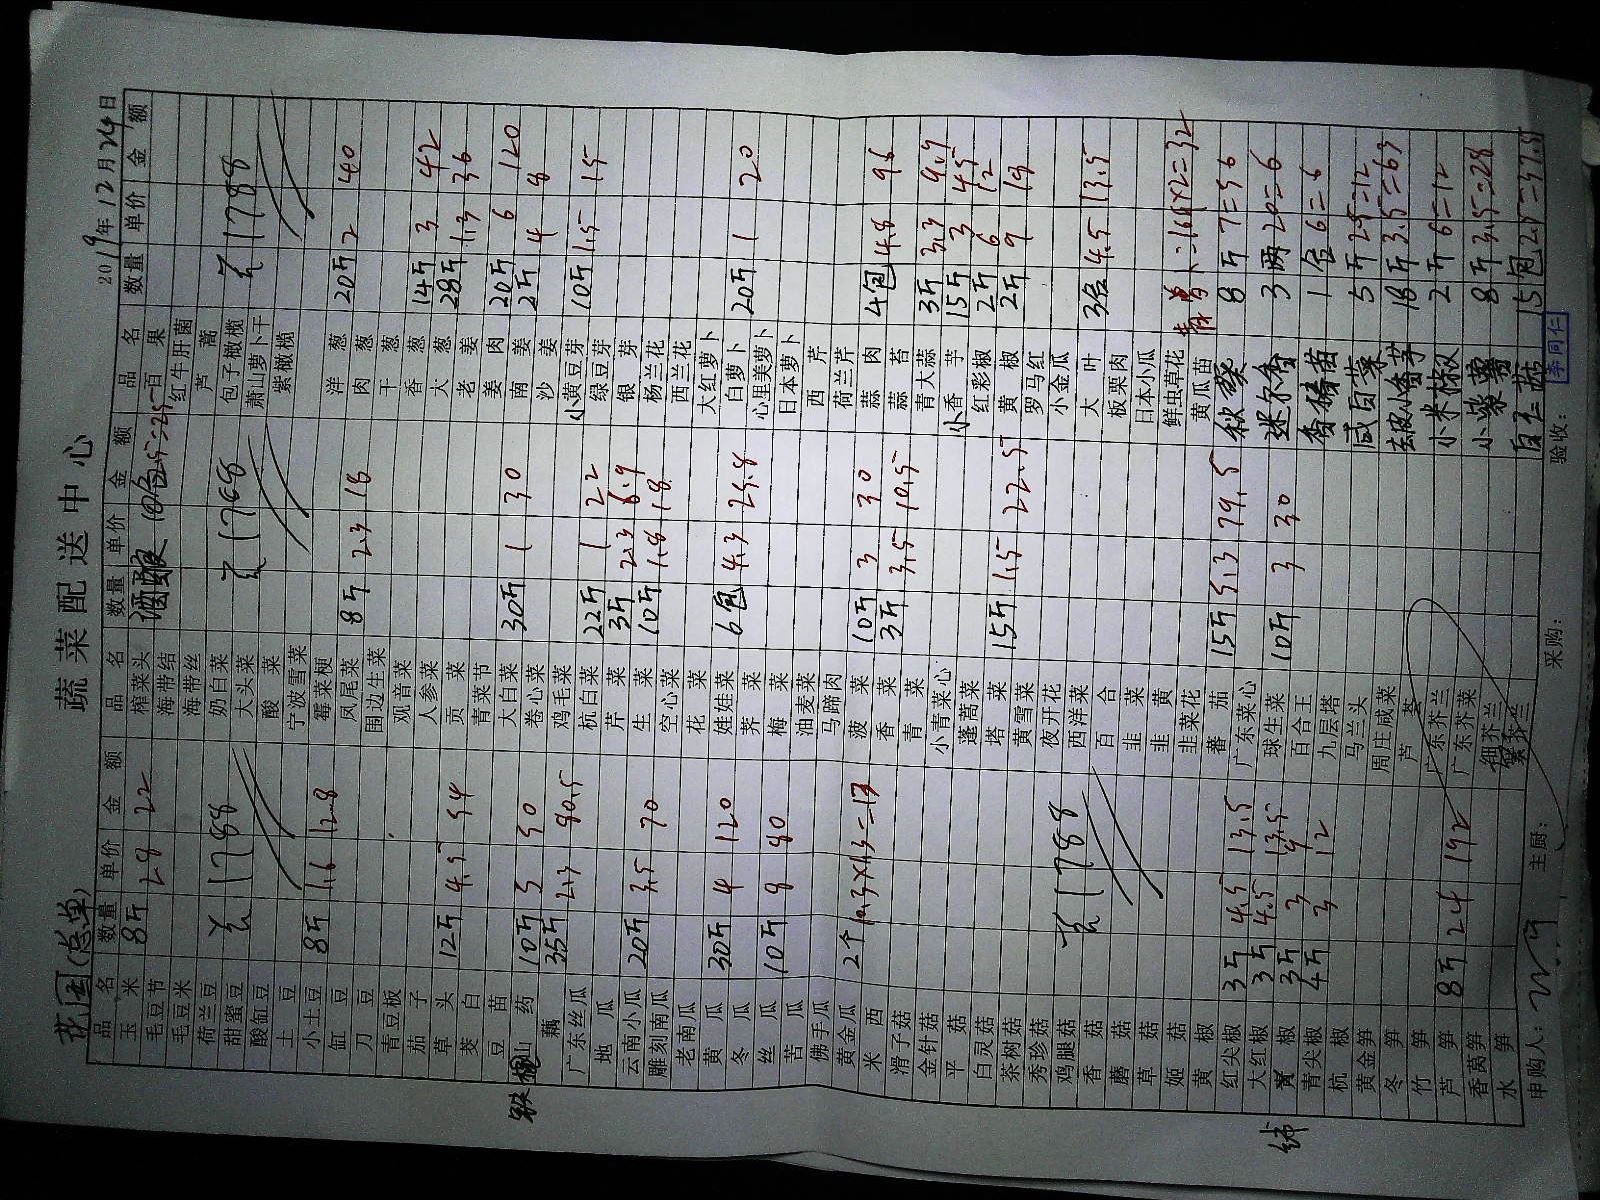 蔬菜配送中心
花园(总单)
2019年12月24日
品名 数量 单价 金额 品名 数量 单价 金额 品名 数量 单价 金额
玉米 8斤 2.8 22 榨菜头 酒酿 10包 2.5=25 百果
毛豆节 海带结 红牛肝菌
毛豆米 海带丝 芦蒿
荷兰豆 奶白菜 包子橄榄
甜蜜豆 1788 大头菜 1788 萧山萝卜干 1788
酸缸豆 酸菜 紫橄榄
土豆 宁波雪菜
小土豆 8斤 1.6 12.8 霉菜梗 洋葱 20斤 2 40
缸豆 凤尾菜 8斤 2.3 18 肉葱
刀豆 围边生菜 干葱
青豆板 观音菜 香葱 14斤 3 42
茄子 人参菜 大葱 28斤 1.3 36
草头 12斤 4.5 54 贡菜 老姜
茭白 青菜节 姜肉 20斤 6 120
豆苗 大白菜 30斤 1 30 南姜 2斤 4 8
山药 10斤 5 50 卷心菜 沙姜
藕 35斤 2.3 80.5 鸡毛菜 小黄豆芽 10斤 1.5 15
广东丝瓜 杭白菜 22斤 1 22 绿豆芽
地瓜 芹菜 3斤 2.3 6.9 银芽
云南小瓜 20斤 3.5 70 生菜 10斤 1.8 18 杨兰花
雕刻南瓜 空心菜 西兰花
老南瓜 花菜 大红萝卜
黄瓜 30斤 4 120 娃娃菜 6包 4.3 25.8 白萝卜 20斤 1 20
冬瓜 荠菜 心里美萝卜
丝瓜 10斤 8 80 梅菜 日本萝卜
苦瓜 油麦菜 西芹
佛手瓜 马蹄肉 荷兰芹
黄金瓜 2个 菠菜 10斤 3 30 蒜肉 4包 4.8
米西 香菜 3斤 3.5 10.5 蒜苔
滑子菇 青菜 青大蒜 3斤 3.3 9.9
金针菇 小青菜心 小香芋 15斤 3 45
平菇 蓬蒿菜 红彩椒 2斤 6 12
白灵菇 塔菜 15斤 1.5 22.5 黄椒 2斤 9 18
茶树菇 黄雪菜 罗马红
秀珍菇 夜开花 小金瓜
鸡腿菇 1788 西洋菜 大叶 3包 4.5 13.5
香菇 百合 板栗肉
蘑菇 韭菜 日本小瓜
草菇 韭黄 鲜虫草花 16X2=32
姬菇 韭菜花 黄瓜苗
黄椒 蕃茄 15斤 5.3 79.5 秋葵 8斤 7=56
红尖椒 3斤 4.5 13.5 广东菜心
大红椒 3斤 4.5 13.5 球生菜 10斤 3 30 迷尔香 3两 2=6
椒 3斤 3 9 百合王 香椿苗 1盒 6=6
青尖椒 4斤 3 12 九层塔 咸白菜 5斤
杭椒 马兰头 去皮小香芋 18斤 3.5=63
黄金笋 周庄咸菜 小米椒 2斤 6=12
冬笋 芦荟 小紫薯 8斤 3.5=28
竹笋 广东芥兰 白玉菇 15包 2.5=37.5
芦笋 8斤 24 192 广东芥菜
香莴笋 细芥兰
水笋
申购人: 主厨: 采购: 验收: 李同仁